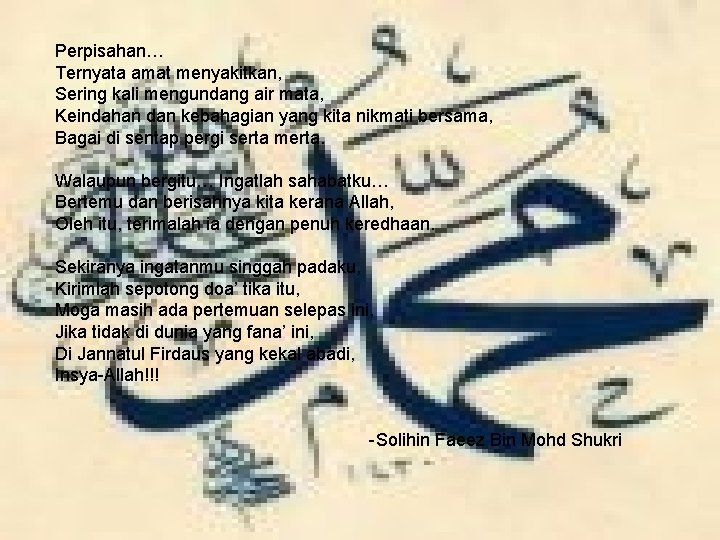 Perpisahan…
Ternyata amat menyakitkan,
Sering kali mengundang air mata,
Keindahan dan kebahagian yang kita nikmati bersama,
Bagai di sentap pergi serta merta.
Walaupun bergitu… Ingatlah sahabatku…
Bertemu dan berisahnya kita kerana Allah,
Oleh itu, terimalah ia dengan penuh keredhaan.
Sekiranya ingatanmu singgah padaku,
Kirimlah sepotong doa’ tika itu,
Moga masih ada pertemuan selepas ini,
Jika tidak di dunia yang fana’ ini,
Di Jannatul Firdaus yang kekal abadi,
Insya-Allah!!!
-Solihin Faeez Bin Mohd Shukri